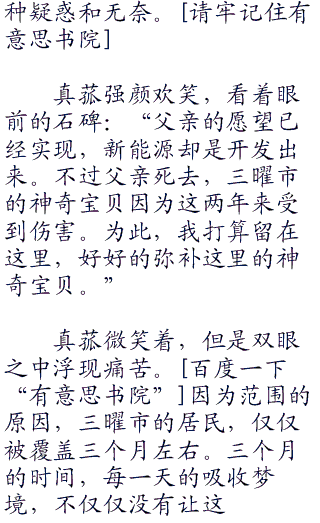 种疑惑和无奈。[请牢记住有
意思书院]
真菰强颜欢笑，看着眼
前的石碑：“父亲的愿望已
经实现，新能源却是开发出
来。不过父亲死去，三曜市
的神奇宝贝因为这两年来受
到伤害。为此，我打算留在
这里，好好的弥补这里的神
奇宝贝。”
真菰微笑着，但是双眼
之中浮现痛苦。[百度一下
“有意思书院”]因为范围的
原因，三曜市的居民，仅仅
被覆盖三个月左右。三个月
的时间，每一天的吸收梦
境，不仅仅没有让这